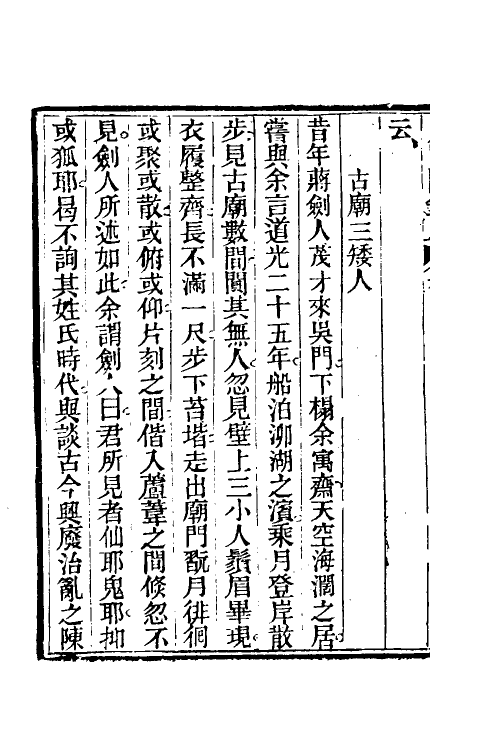 云
古廟三矮人
昔年蔣劍人茂才來吳門下榻余寓齋天空海濶之居
嘗與余言道光二十五年船泊泖湖之濱乘月登岸散
步見古廟數間闃其無人忽見壁上三小人鬚眉畢現
衣履整齊長不滿一尺步下苔堦走出廟門翫月徘徊
或聚或散或俯或仰片刻之間偕入蘆葦之間倏忽不
見劍人所述如此余謂劍人曰君所見者仙耶鬼耶抑
或狐耶曷不詢其姓氏時代與談古今興廢治亂之陳